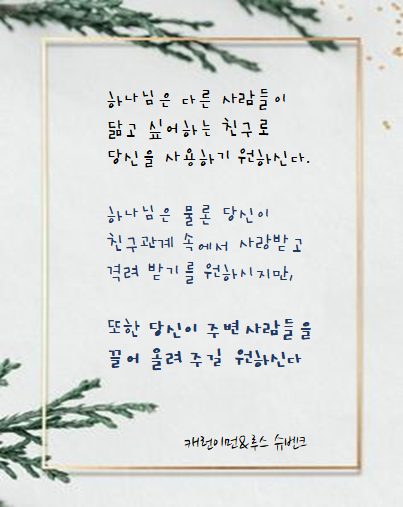 하나님은 다른 사람들이
닮고 싶어하는 친구로
당신을 사용하기 원하신다.
하나님은 물론 당신이
친구관계 속에서 사랑받고
격려 받기를 원하시지만,
또한 당신이 주변사람들을
끌어 올려 주길 원하신다
캐런이먼&루스 슈벤크